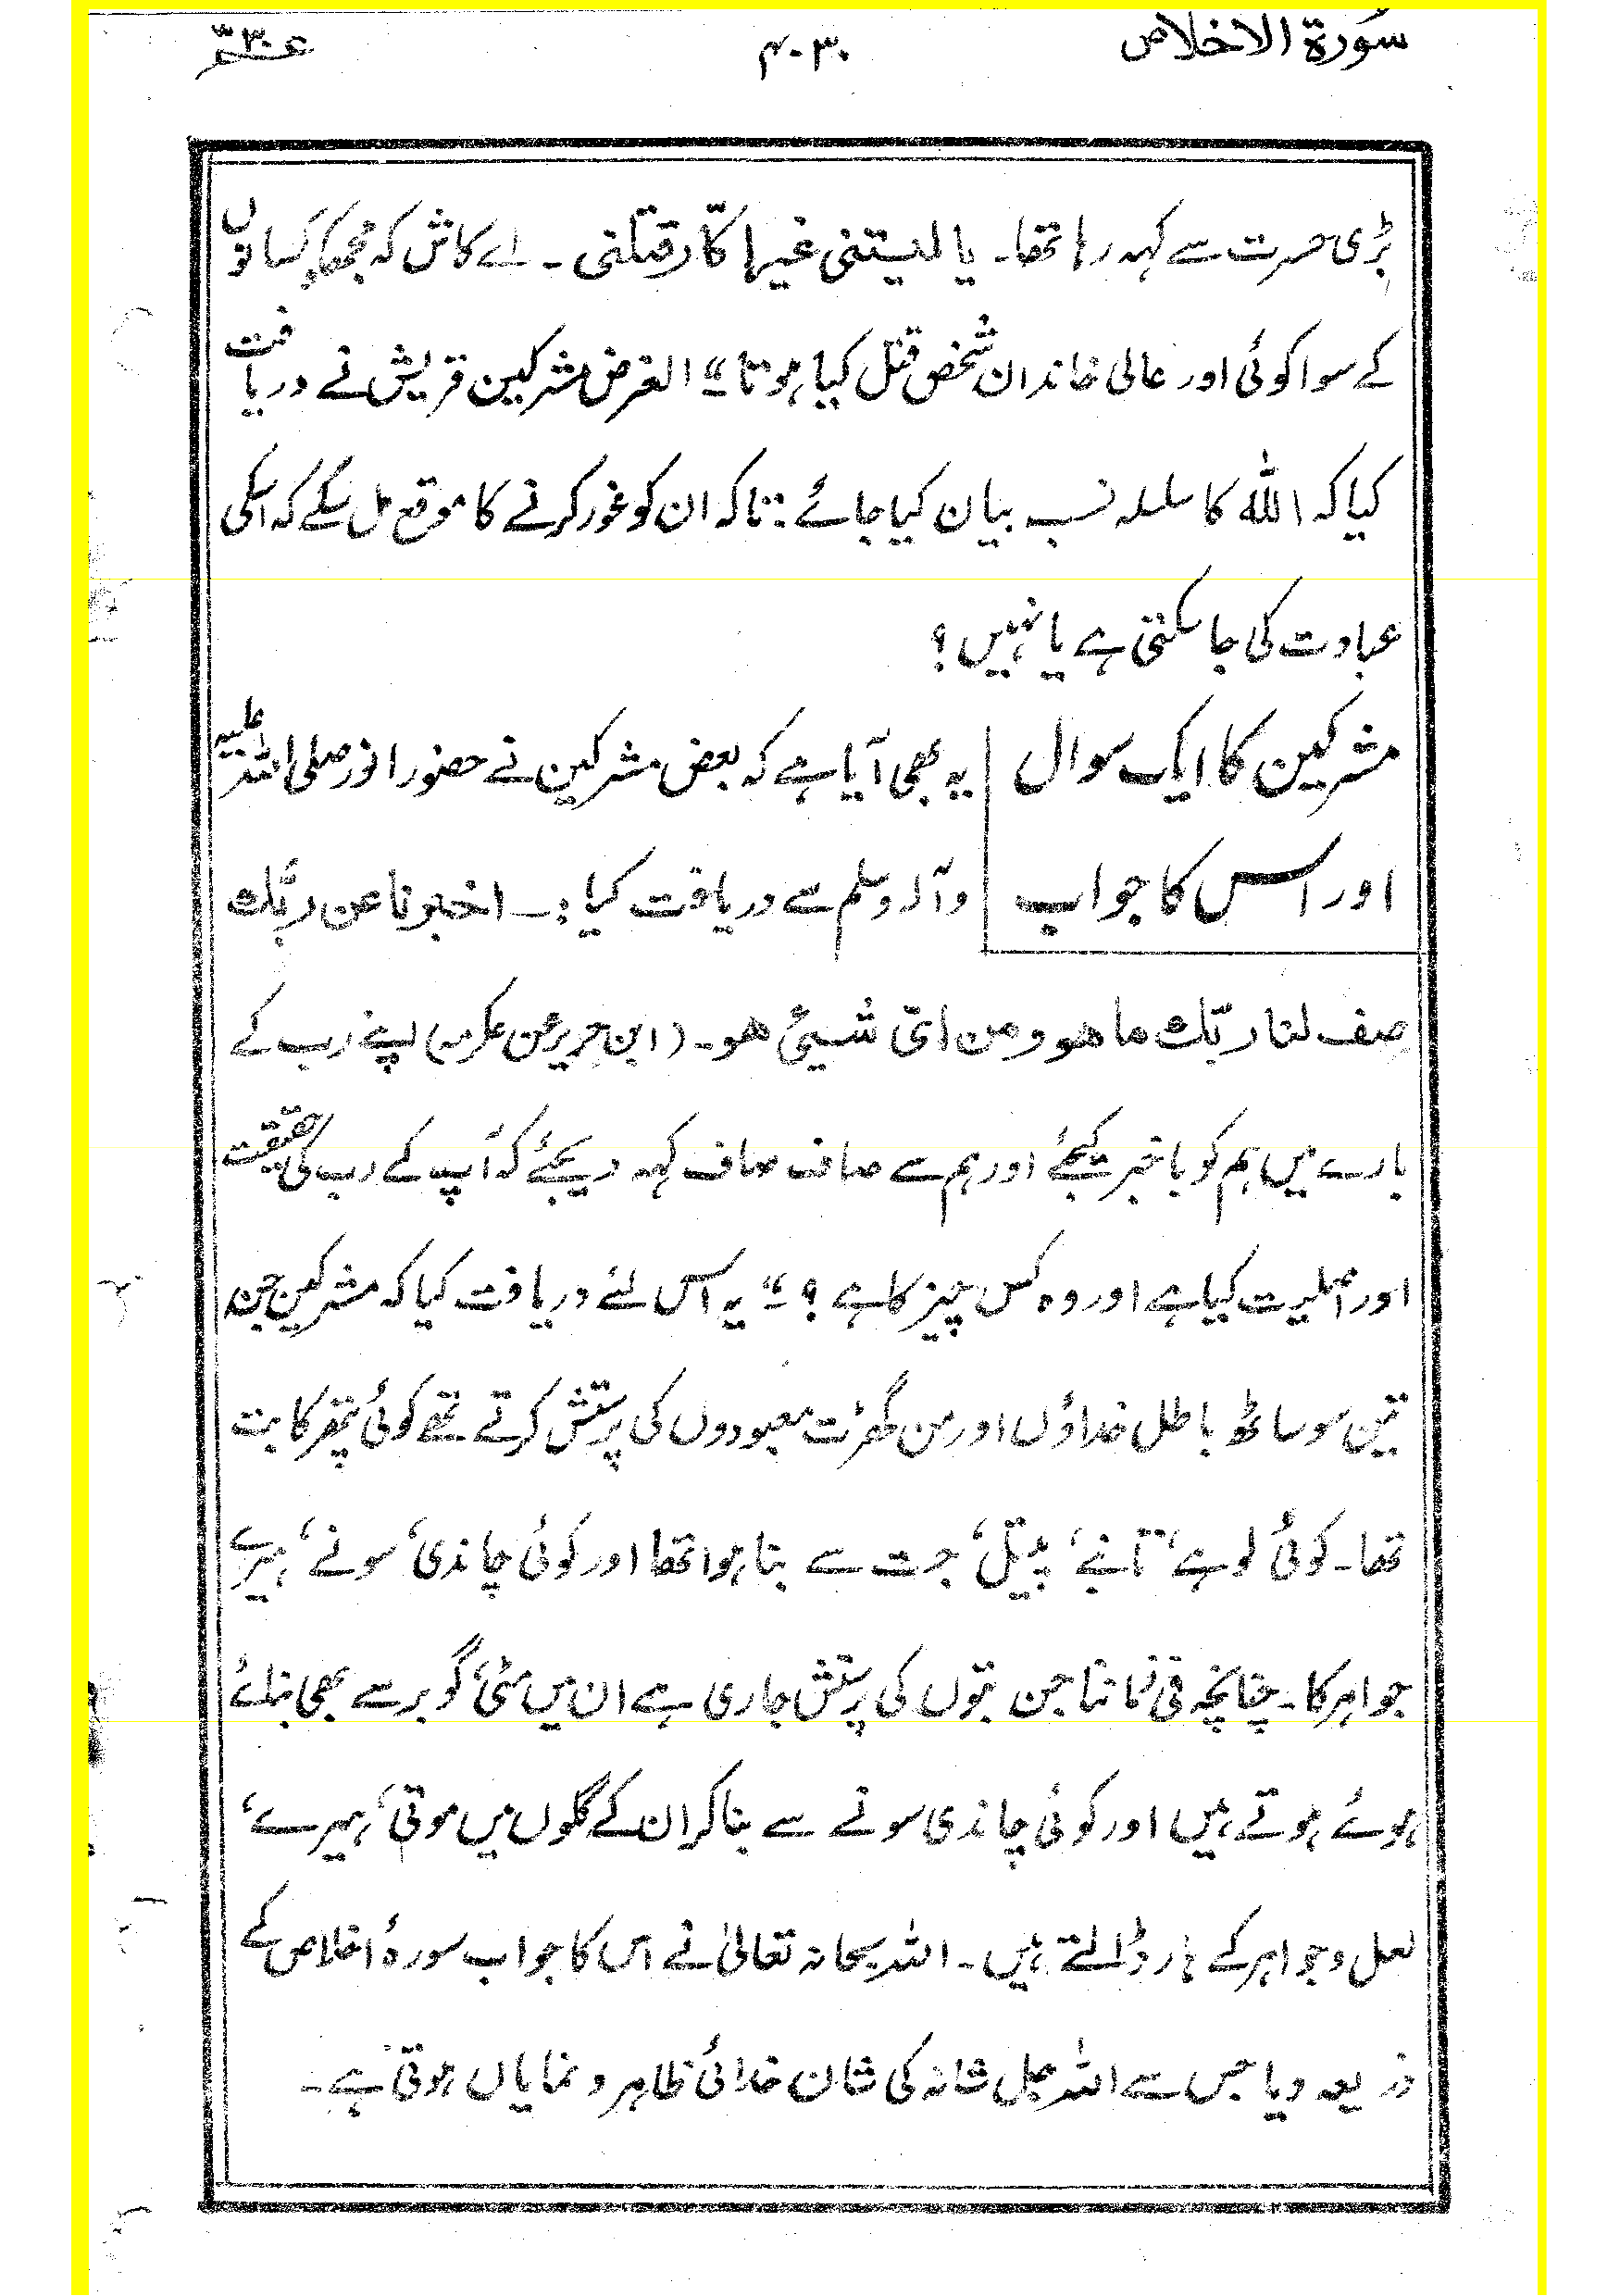 سورة الاخلاص
۳۰-۴
عم ۳۰
بڑی حسرت سے کہہ رہا تھا۔ یا لیتنی غیر اکّار قتلنی ۔ اے کاش کہ مجھکو کسانوں
کے سوا کوئی اور عالی خاندان شخص قتل کیا ہوتا ۔" الغرض مشرکین قریش نے دریافت
کیا کہ اللہ کا سلسلہ نسب بیان کیا جائے : تاکہ ان کو غور کرنے کا موقع مل سکے کہ اسکی
عبادت کی جا سکتی ہے یا نہیں ؟
مشرکین کا ایک سوال
اور اس کا جواب
یہ بھی آیا ہے کہ بعض مشرکین نے حضور انور صلی اللہ علیہ
و آلہ وسلم سے دریافت کیا :۔ اخبرنا عن ربّک
صف لنا ربّک ما هو و من ایّ شیئ هو۔ (ابن جریر عن عکرمہ) اپنے رب کے
بارے میں ہم کو باخبر کیجئے اور ہم سے صاف صاف کہہ دیجئے کہ آپ کے رب کی حقیقت
اور اصلیت کیا ہے اور وہ کس چیز کا ہے ؟ ۔" یہ اس لئے دریافت کیا کہ مشرکین جن
تین سو ساٹھ باطل خداؤں اور من گھڑت معبودوں کی پرستش کرتے تھے کوئی پتھر کا بت
تھا۔ کوئی لوہے، تانبے، پیتل، جست سے بنا ہوا تھا اور کوئی چاندی، سونے، ہیرے
جواہر کا ۔ چنانچہ فی زماننا جن بتوں کی پرستش جاری ہے ان میں مٹی، گوبر سے بھی بنائے
ہوئے ہوتے ہیں اور کوئی چاندی سونے سے بنا کر ان کے گلوں میں موتی، ہیرے،
لعل و جواہر کے ہار ڈالتے ہیں ۔ اللہ سبحانہ تعالیٰ نے اس کا جواب سورۂ اخلاص کے
ذریعہ دیا جس سے اللہ جل شانہ کی شان خدائی ظاہر و نمایاں ہوتی ہے ۔